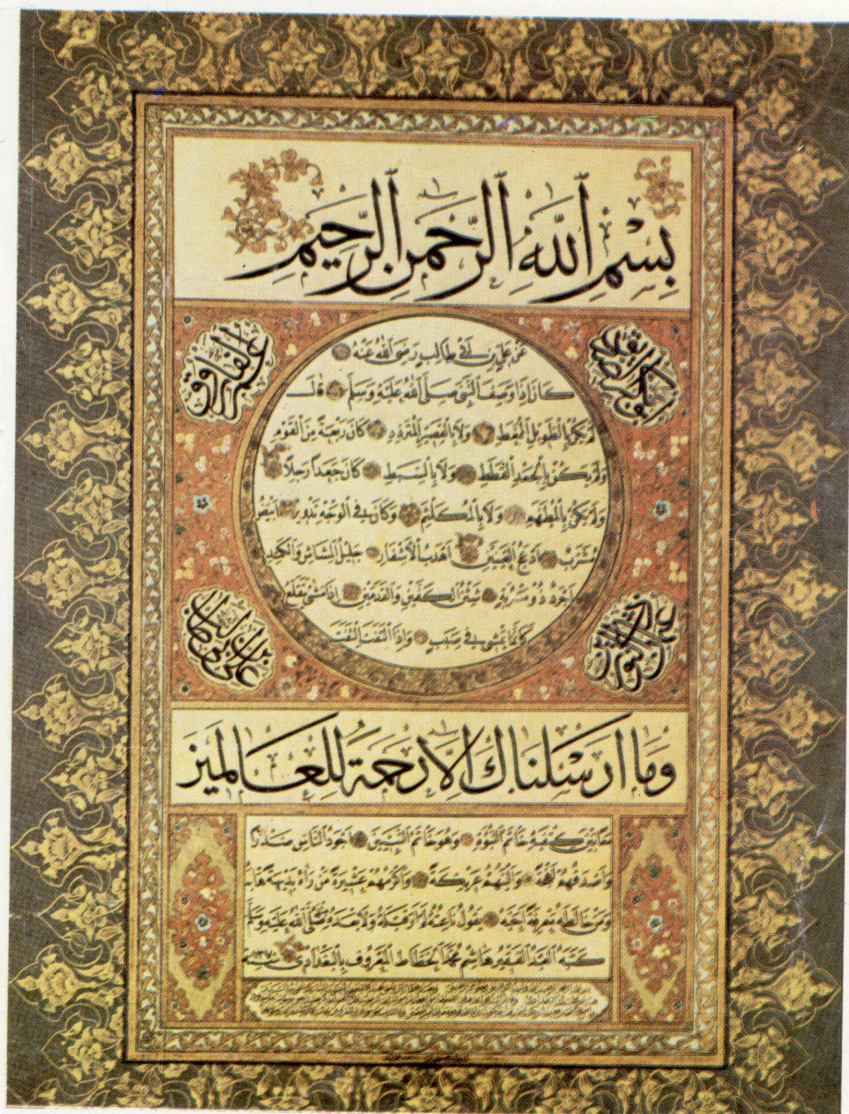 بِسْمِ اللهِ الرَّحْمٰنِ الرَّحِيمِ
أبو بكر الصديق
عمر الفاروق
عَنْ عَلِيِّ بْنِ أَبِي طَالِبٍ رَضِيَ اللهُ عَنْهُ
كَانَ إِذَا وَصَفَ النَّبِيَّ صَلَّى اللهُ عَلَيْهِ وَسَلَّمَ قَالَ
لَمْ يَكُنْ بِالطَّوِيلِ الْمُمَّغِطِ وَلَا بِالْقَصِيرِ الْمُتَرَدِّدِ كَانَ رَبْعَةً مِنَ الْقَوْمِ
وَلَمْ يَكُنْ بِالْجَعْدِ الْقَطَطِ وَلَا بِالسَّبِطِ كَانَ جَعْدًا رَجِلًا
وَلَمْ يَكُنْ بِالْمُطَهَّمِ وَلَا بِالْمُكَلْثَمِ وَكَانَ فِي الْوَجْهِ تَدْوِيرٌ أَبْيَضُ
مُشْرَبٌ أَدْعَجُ الْعَيْنَيْنِ أَهْدَبُ الْأَشْفَارِ جَلِيلُ الْمُشَاشِ وَالْكَتَدِ
أَجْرَدُ ذُو مَسْرُبَةٍ شَثْنُ الْكَفَّيْنِ وَالْقَدَمَيْنِ إِذَا مَشَى تَقَلَّعَ
كَأَنَّمَا يَمْشِي فِي صَبَبٍ وَإِذَا الْتَفَتَ الْتَفَتَ
عثمان ذو النورين
علي بن أبي طالب
وَمَا أَرْسَلْنَاكَ إِلَّا رَحْمَةً لِلْعَالَمِينَ
مَعًا بَيْنَ كَتِفَيْهِ خَاتَمُ النُّبُوَّةِ وَهُوَ خَاتَمُ النَّبِيِّينَ أَجْوَدُ النَّاسِ صَدْرًا
وَأَصْدَقُهُمْ لَهْجَةً وَأَلْيَنُهُمْ عَرِيكَةً وَأَكْرَمُهُمْ عَشِيرَةً مَنْ رَآهُ بَدِيهَةً هَابَهُ
وَمَنْ خَالَطَهُ مَعْرِفَةً أَحَبَّهُ يَقُولُ نَاعِتُهُ لَمْ أَرَ قَبْلَهُ وَلَا بَعْدَهُ مِثْلَهُ صَلَّى اللهُ عَلَيْهِ وَسَلَّمَ
كَتَبَهُ الْعَبْدُ الْفَقِيرُ هَاشِمُ مُحَمَّدٍ الْخَطَّاطُ الْمَعْرُوفُ بِالْبَغْدَادِيِّ سنة